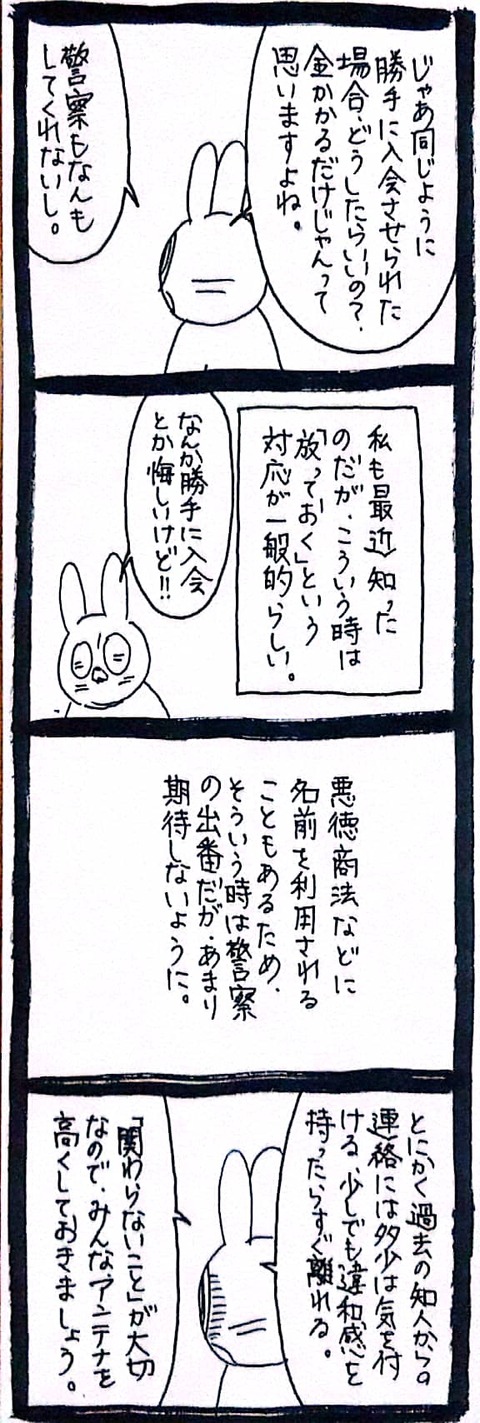 じゃあ同じように
勝手に入会させられた
場合、どうしたらいいの？、
金かかるだけじゃんって
思いますよね。
警察もなんも
してくれないし。
私も最近知った
のだが、こういう時は
「放っておく」という
対応が一般的らしい。
なんか勝手に入会
とか悔しいけど!!
悪徳商法などに
名前を利用される
こともあるため、
そういう時は警察
の出番だが、あまり
期待しないように。
とにかく過去の知人からの
連絡には多少は気を付
ける、少しでも違和感を
持ったらすぐ離れる。
「関わらないこと」が大切
なので、みんなアンテナを
高くしておきましょう。